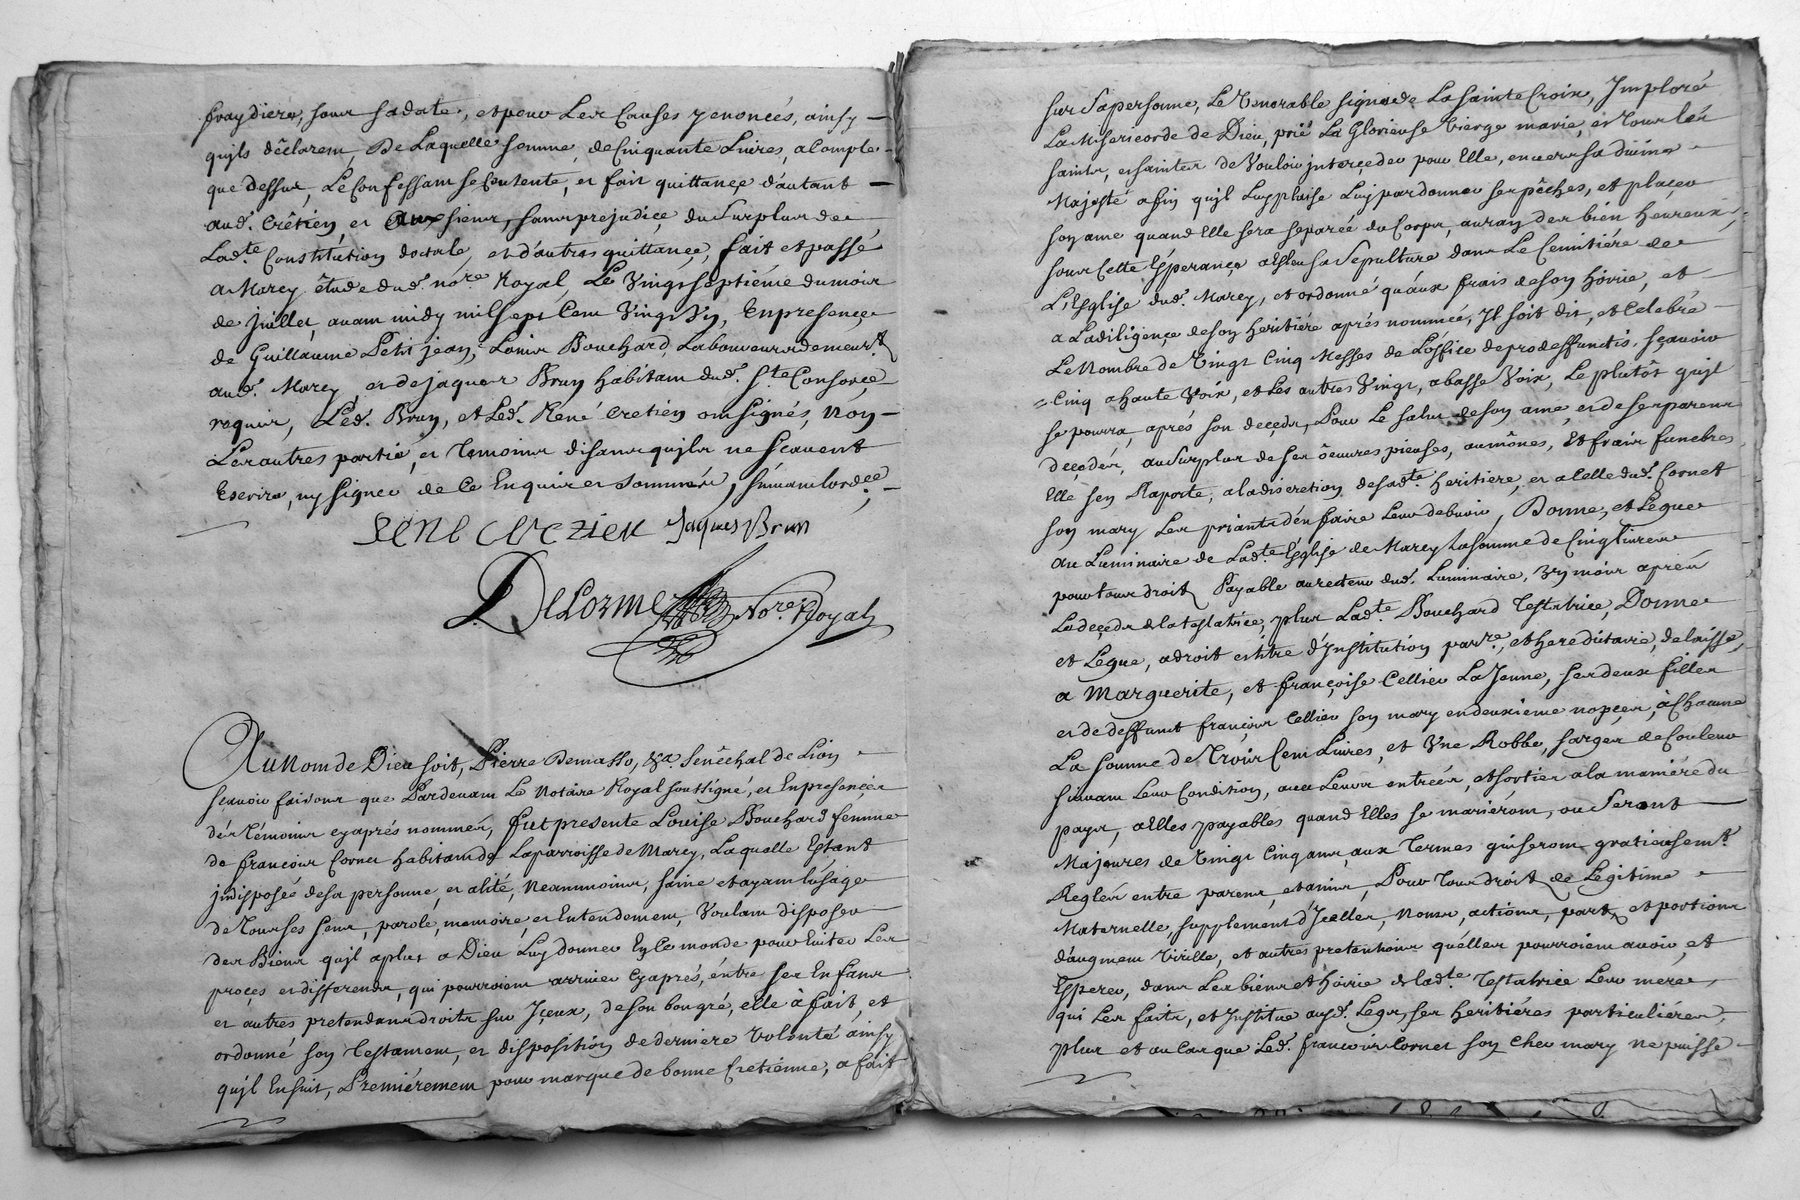 fraydiere, sous sa date, et pour Les Causes y enoncés, ainsy
quils dêclarent, De Laquelle somme de Cinquante Livres, a Compte
que dessus, Le Confessant se Contente, et fait quittançe d'autant
aud. Crêtien, et aux siens, sans prejudiçe du Surplus de
Lad.te Constitution dotale, et d'autres quittançe, fait et passé
a Marcy êtude dud. no.re Royal, Le Vingt septiéme du mois
de Juillet, avant midy mil sept Cent Vingt Un, En presençe
de Guillaume Petit jean, Louis Bouchard, Laboureurs demeur.t
aud. Marcy, et de jaques Brun habitant dud. S.te Consorçe
requis, Led. Brun, et Led. René Cretien ont signés, Non
Les autres partie, et Temoins disants quils ne sçavent
Escrire, ny signer de Ce Enquis et sommés, suivant lord.ce
RENE CREZIEN Jaques Brun
Delorme No.re Royal
Au Nom de Dieu soit, Pierre Demasso, Senêchal de Lion
sçavoir faisons que Pardevant Le Notaire Royal soussigné, et En presençes
dés Témoins cy aprés nommés, fut presente Louise Bouchard femme
de françois Cornet habitant de La parroisse de Marcy, Laquelle Estant
jndisposée de sa personne, et alité, Neanmoins, saine et ayant Lusage
de Tous ses sens, parole, memoire, et Entendement, Voulant disposer
des Biens quil a plut a Dieu Luy donner En Ce monde pour Eviter Les
proçes et differends, qui pourroient arriver Cy aprés, éntre ses Enfans
et autres pretendans droits sur Jçeux, de son bon gré, elle à fait, et
ordonné son Testament, et disposition de derniere Volonté ainsy
quil Ensuit, Premiérement pour marque de bonne Cretienne, a fait
sur Sa personne, Le Venerable signe de La Sainte Croix, Jmploré
La Misericorde de Dieu, prié La Glorieuse Vierge marie, et Tous Les
saints, et saintes de Vouloir jnterçeder pour Elle, envers sa divine
Majesté afin quil Luy plaise Luy pardonner ses pêches, et plaçer
son ame quand Elle sera separée du Corps, au rang des bien heureux,
sous Cette Esperançe a Esleu sa Sepulture dans Le Cemitiére de
L'Esglise dud. Marcy, et ordonné quáux frais de son hoirie, et
a La diligençe de son heritiére aprés nommée, Il soit dit, et Celebré
Le Nombre de Vingt Cinq Messes de L'office de pro deffunctis, sçavoir
Cinq a haute Voix, et Les autres Vingt, a basse Voix, Le plûtôt quil
se pourra, aprés son deçeds, Pour Le salut de son ame, et de ses parens
deçedés, au Surplus de ses oeuvres pieuses, aumônes, Et frais funebres
Elle sen Raporte, a la discretion de sad.te heritiere, et a Celle dud. Cornet
son mary Les priants d'en faire Leur debvoir, Donne, et Legue
au Luminaire de Lad.te Église de Marcy La somme de Cinq livres
pour tous droits Payable au recteur dud. Luminaire, Un mois aprés
Le deçeds de la testatrice, plus Lad.te Bouchard Testatrice, Donne
et Legue, a droit et titre d'Institution par.re, et hereditaire, delaisse,
a Marguerite, et françoise Cellier La Jeune, ses deux filles
et de deffunt françois Cellier son mary en deuxieme nopçes, à Chacune
La somme de Trois Cent Livres, et Une Robbe, sarges de Couleur
suivant Leur Condition, avec Leurs entrées, et sorties a la maniére du
pays, a Elles payables quand Elles se mariéront, ou seront
Majeures de Vingt Cinq ans, aux Termes qui seront gratieusem.t
Reglés entre parens, et amis, Pour Tous droits de Legitime
Maternelle, supplement d'Icelles, Noms, actions, part, et portions
d'augment Virille, et autres pretentions quélles pourroient avoir, et
Esperer, dans Les biens et hoirie de lad.te Testatrice Leur mere,
qui Les faits, et Institue aysd. Legs, ses heritiéres particuliéres,
plus et au Cas que Led. françois Cornet son Cher mary ne puisse